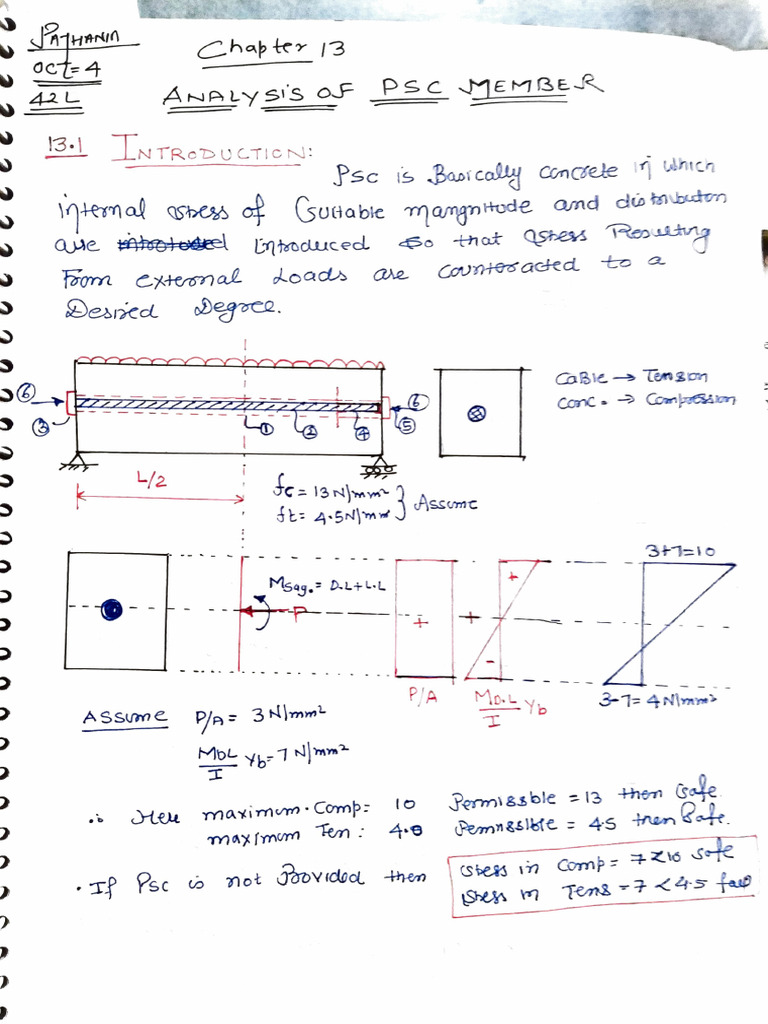 PATHANIA
OCT=4
42L
Chapter 13
ANALYSIS OF PSC MEMBER
13.1 INTRODUCTION:
PSC is Basically concrete in which
internal stress of Suitable mangnitude and distributon
are Introduced So that Stress Resulting
From external Loads are counteracted to a
Desired Degree.
⑥ ③ ① ② ④ ⑤ ⑥
CaBle → Tension
conc. → Compression
L/2
fc = 13 N/mm²
ft = 4.5 N/mm²
} Assume
3+7=10
MSag. = D.L+L.L
P
+ + + -
P/A
MD.L/I Yb
3-7=4 N/mm²
ASSUME P/A = 3 N/mm²
MDL/I Yb = 7 N/mm²
∴ Here maximum.Comp= 10 Permissble = 13 then Safe
maximum Ten: 4.0 Permissible = 45 then Safe.
• If Psc is not Provided then
Stess in Comp = 7<10 safe
Stess in Tens = 7<4.5 fail